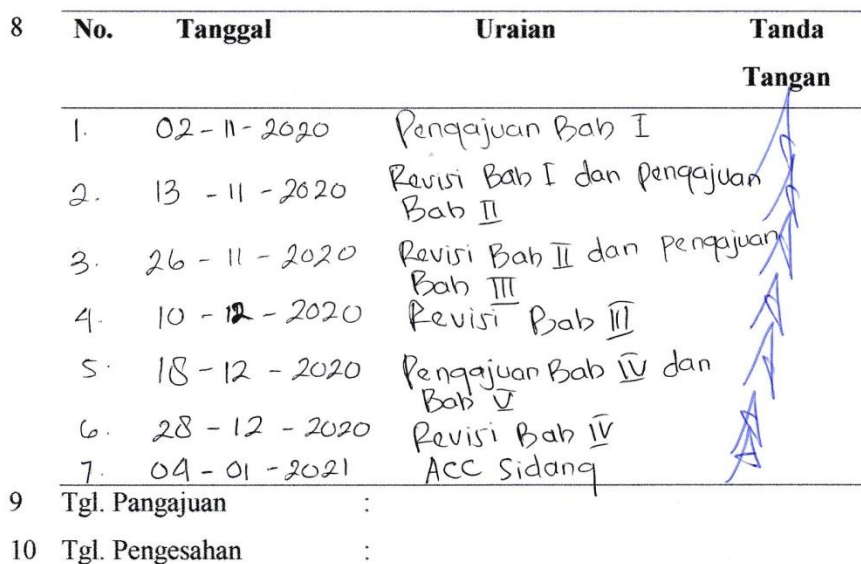 8 No. Tanggal Uraian Tanda
Tangan
1. 02 - 11 - 2020 Pengajuan Bab I
2. 13 - 11 - 2020 Revisi Bab I dan pengajuan
Bab II
3. 26 - 11 - 2020 Revisi Bab II dan pengajuan
Bab III
4. 10 - 12 - 2020 Revisi Bab III
5. 18 - 12 - 2020 Pengajuan Bab IV dan
Bab V
6. 28 - 12 - 2020 Revisi Bab IV
7. 04 - 01 - 2021 ACC Sidang
9 Tgl. Pangajuan :
10 Tgl. Pengesahan :